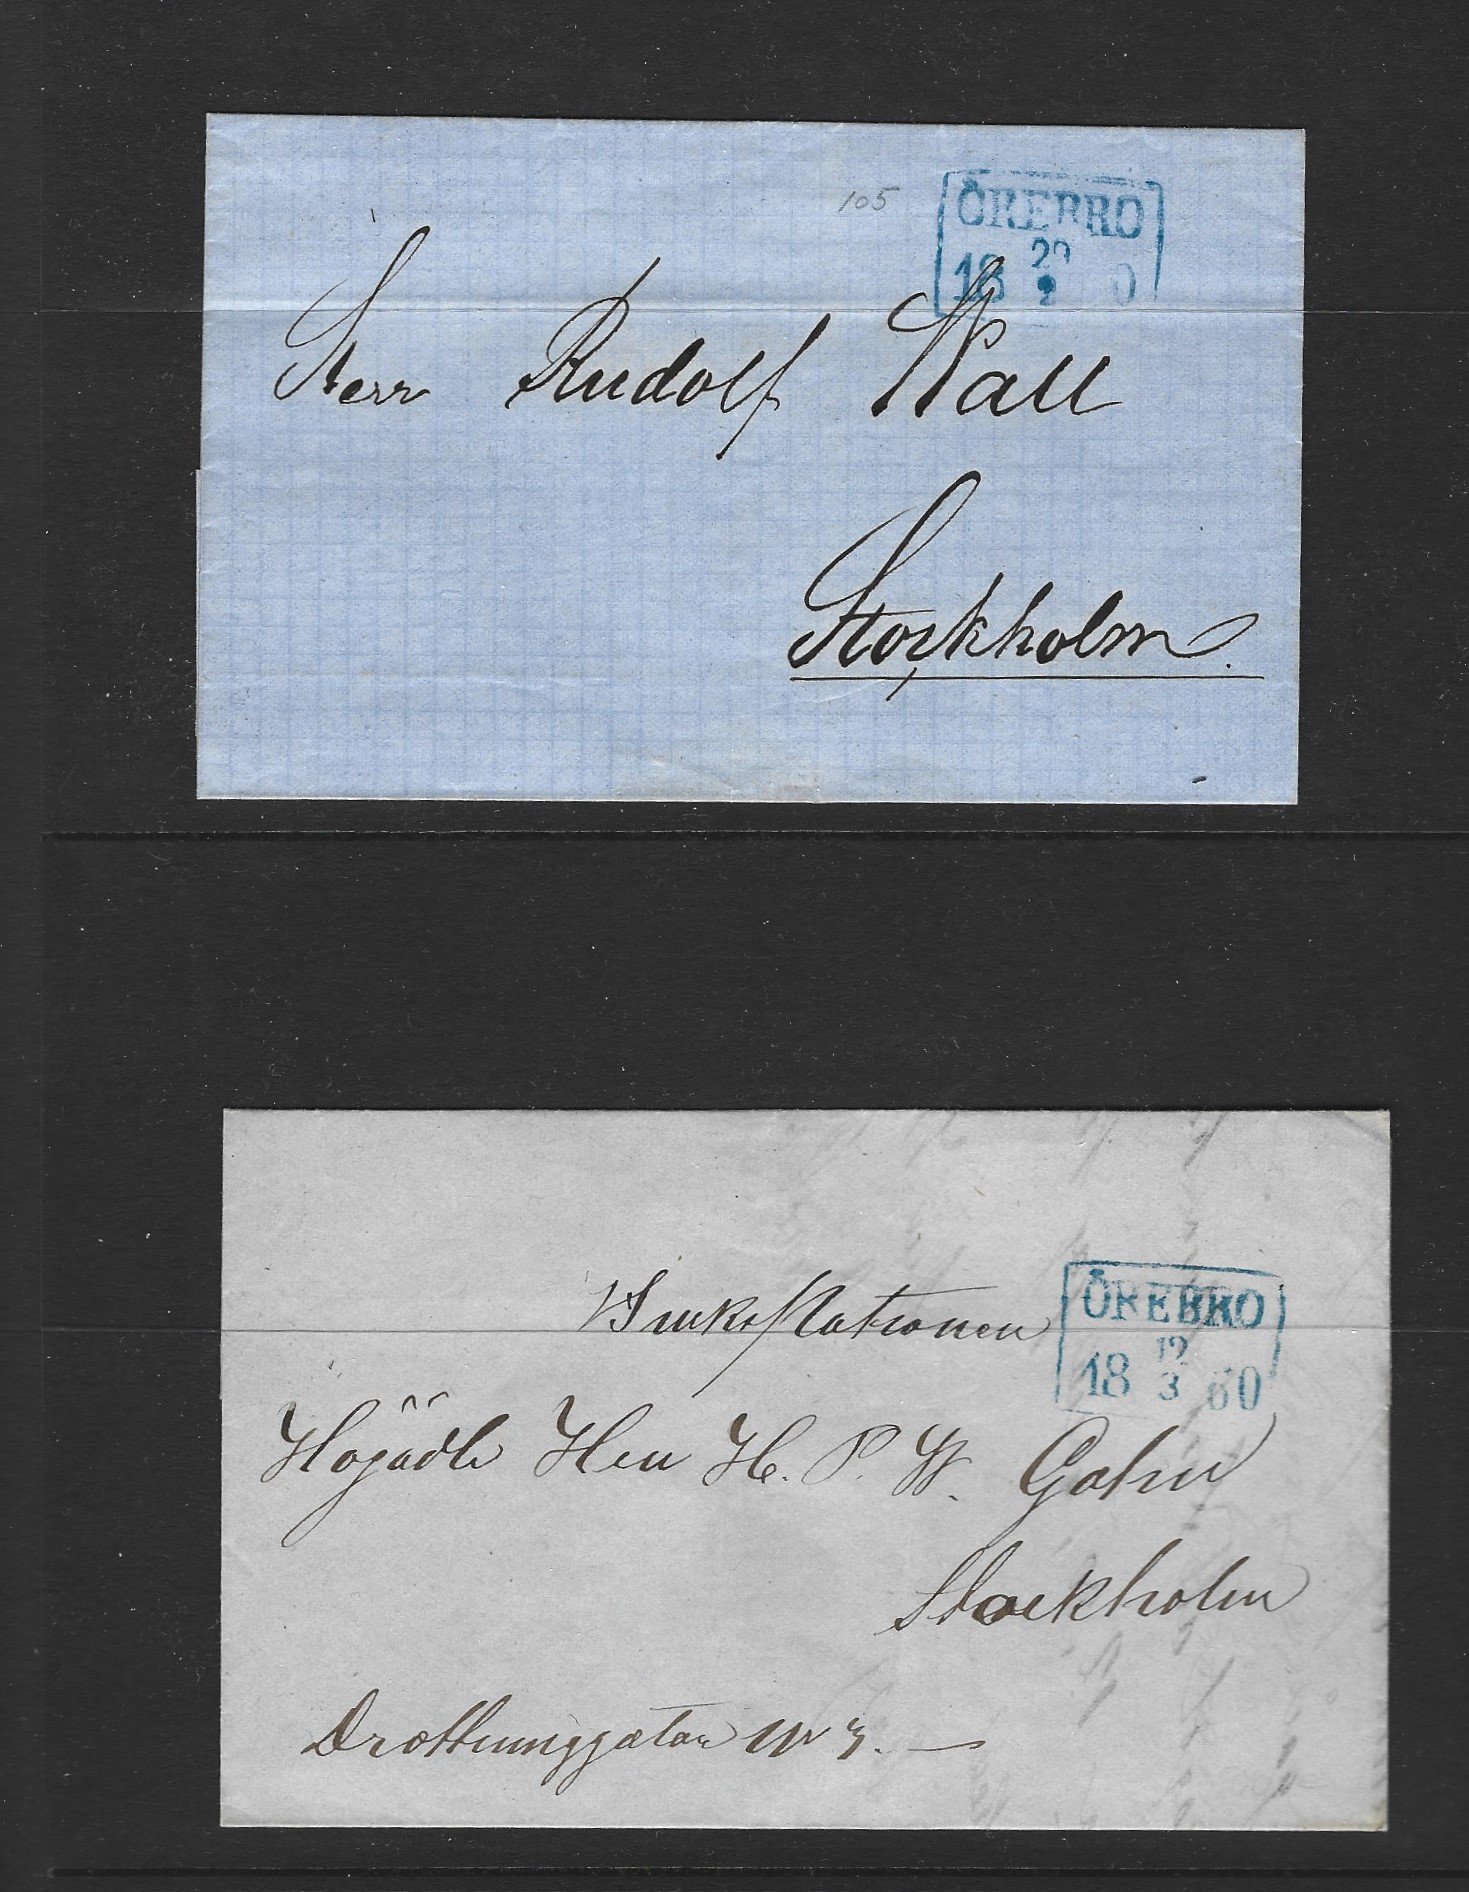 105
ÖREBRO
18 29 0
Herr Rudolf Wall
Stockholm.
ÖREBRO
18 12 3 60
Högädle Herr H. P. W. Gahn
Stockholm
Drottninggatan No 3. —